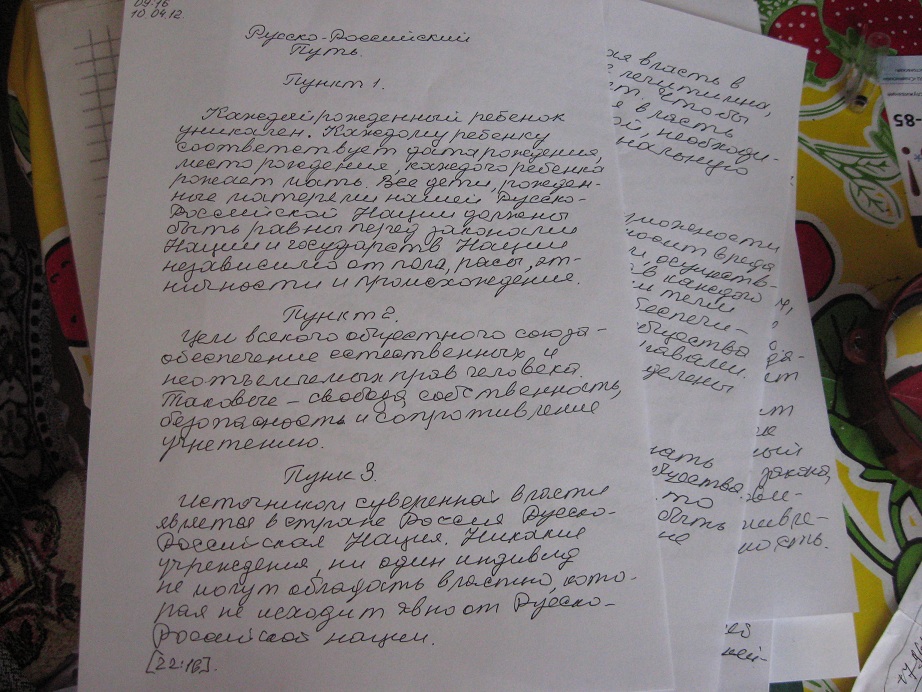 09:16
10.04.12.
Русско-Российский
Путь.
Пункт 1.
Каждый рожденный ребенок
уникален. Каждому ребенку
соответствует дата рождения,
место рождения, каждого ребенка
рожает мать. Все дети, рожден-
ные матерями нашей Русско-
Российской Нации должны
быть равны перед законами
Нации и государств Нации
независимо от пола, расы, эт-
ничности и происхождения.
Пункт 2.
Цель всякого общестного союза -
обеспечение естественных и
неотъемлемых прав человека.
Таковые - свобода, собственность,
безопасность и сопротивление
угнетению.
Пунк 3.
Источником суверенной власти
является в стране Россия Русско-
Российская Нация. Никакие
учреждения, ни один индивид
не могут обладать властью, кото-
рая не исходит явно от Русско-
Российской нации.
[22:16].
власть в
легитимна,
чтобы
власть
необходи-
нальную
вреда
осуществ-
каждого
теми
обеспечи-
общества
правами.
делены
общества
то
быть
не
закона,
ность.
-85